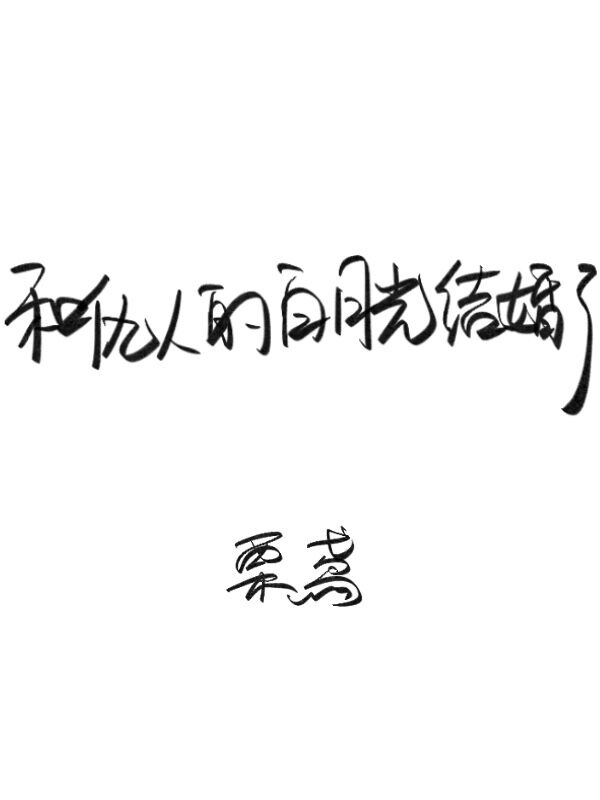 和仇人的白月光结婚了
栗嵩